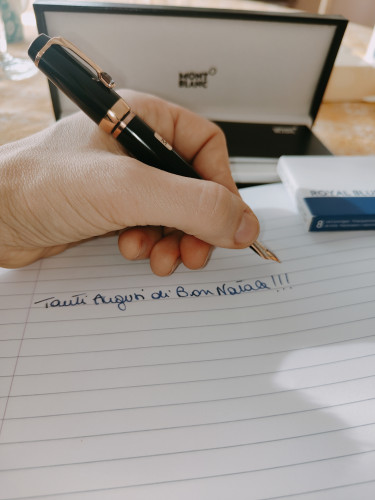 MONT
BLANC
ROYAL BLUE
8
Tanti Auguri di Bon Natale!!!